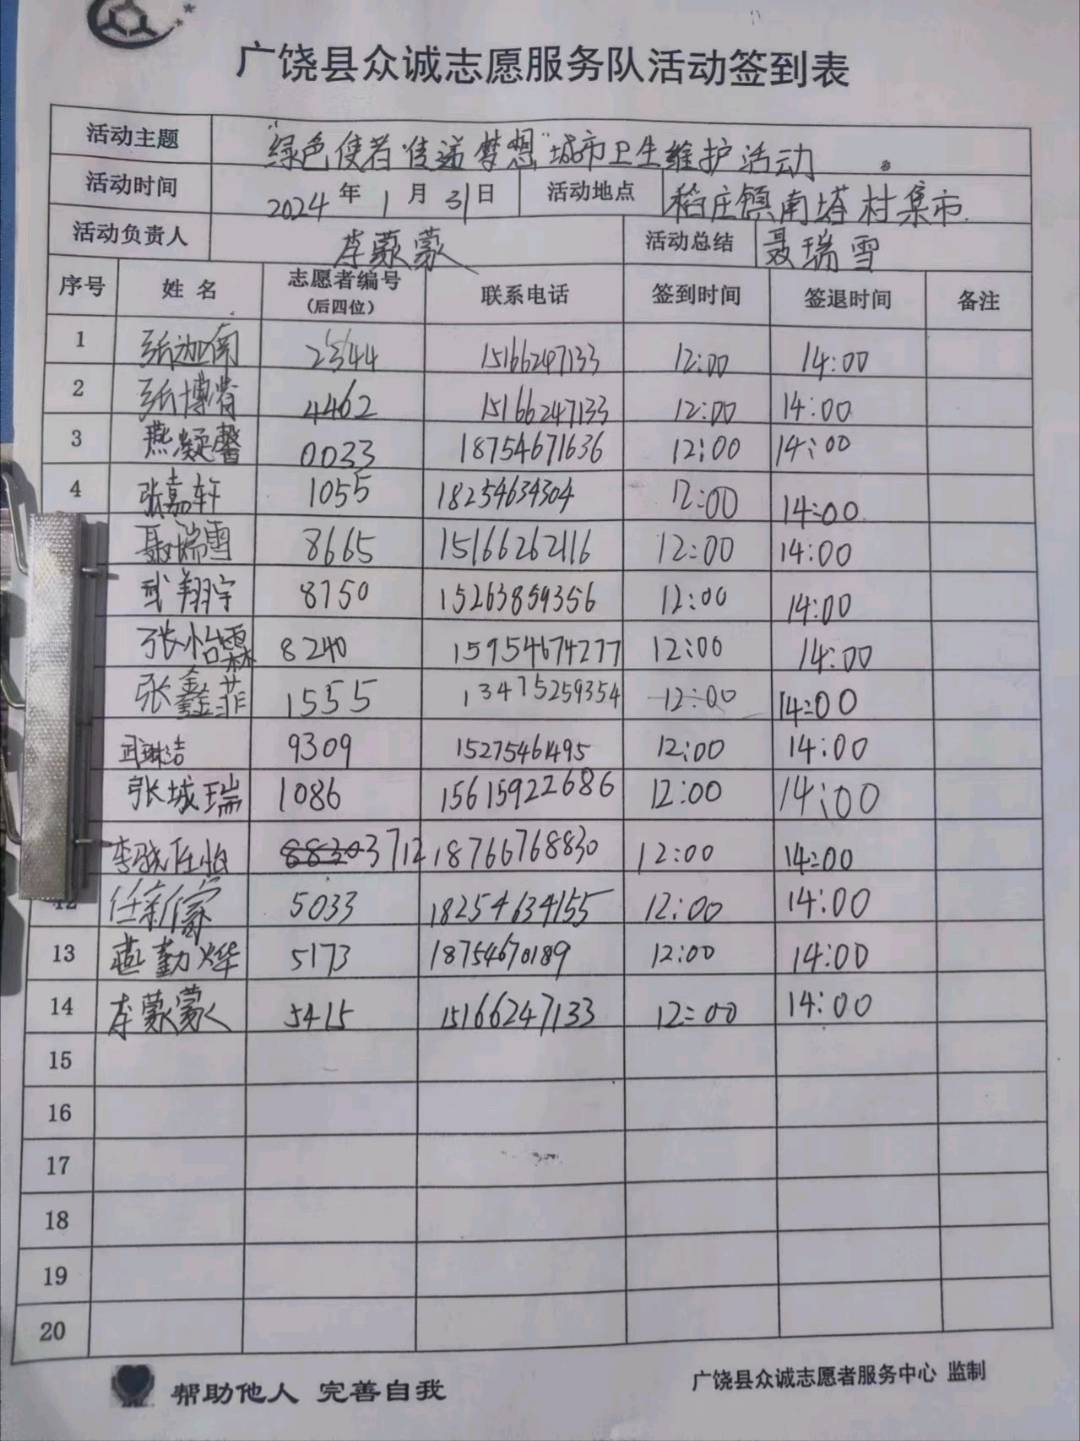 广饶县众诚志愿服务队活动签到表
活动主题 "绿色使者 传递梦想"城市卫生维护活动
活动时间 2024年1月31日 活动地点 稻庄镇南塔村集市
活动负责人 李蒙蒙 活动总结 聂瑞雪
序号 姓名 志愿者编号(后四位) 联系电话 签到时间 签退时间 备注
1 张迦南 2544 15166247133 12:00 14:00
2 张博 4462 15166247133 12:00 14:00
3 燕凝馨 0033 18754671636 12:00 14:00
4 张嘉轩 1055 18254634304 12:00 14:00
聂瑞雪 8665 15166262116 12:00 14:00
武翔宇 8750 15263859356 12:00 14:00
张怡霖 8240 15954674277 12:00 14:00
张鑫菲 1555 13475259354 12:00 14:00
武琳洁 9309 15275461495 12:00 14:00
张城瑞 1086 15615922686 12:00 14:00
李 任怡 3712 18766768830 12:00 14:00
12 任新蒙 5033 18254634155 12:00 14:00
13 燕勤烨 5173 18754670189 12:00 14:00
14 李蒙蒙 5415 15166247133 12:00 14:00
15
16
17
18
19
20
帮助他人 完善自我
广饶县众诚志愿者服务中心 监制